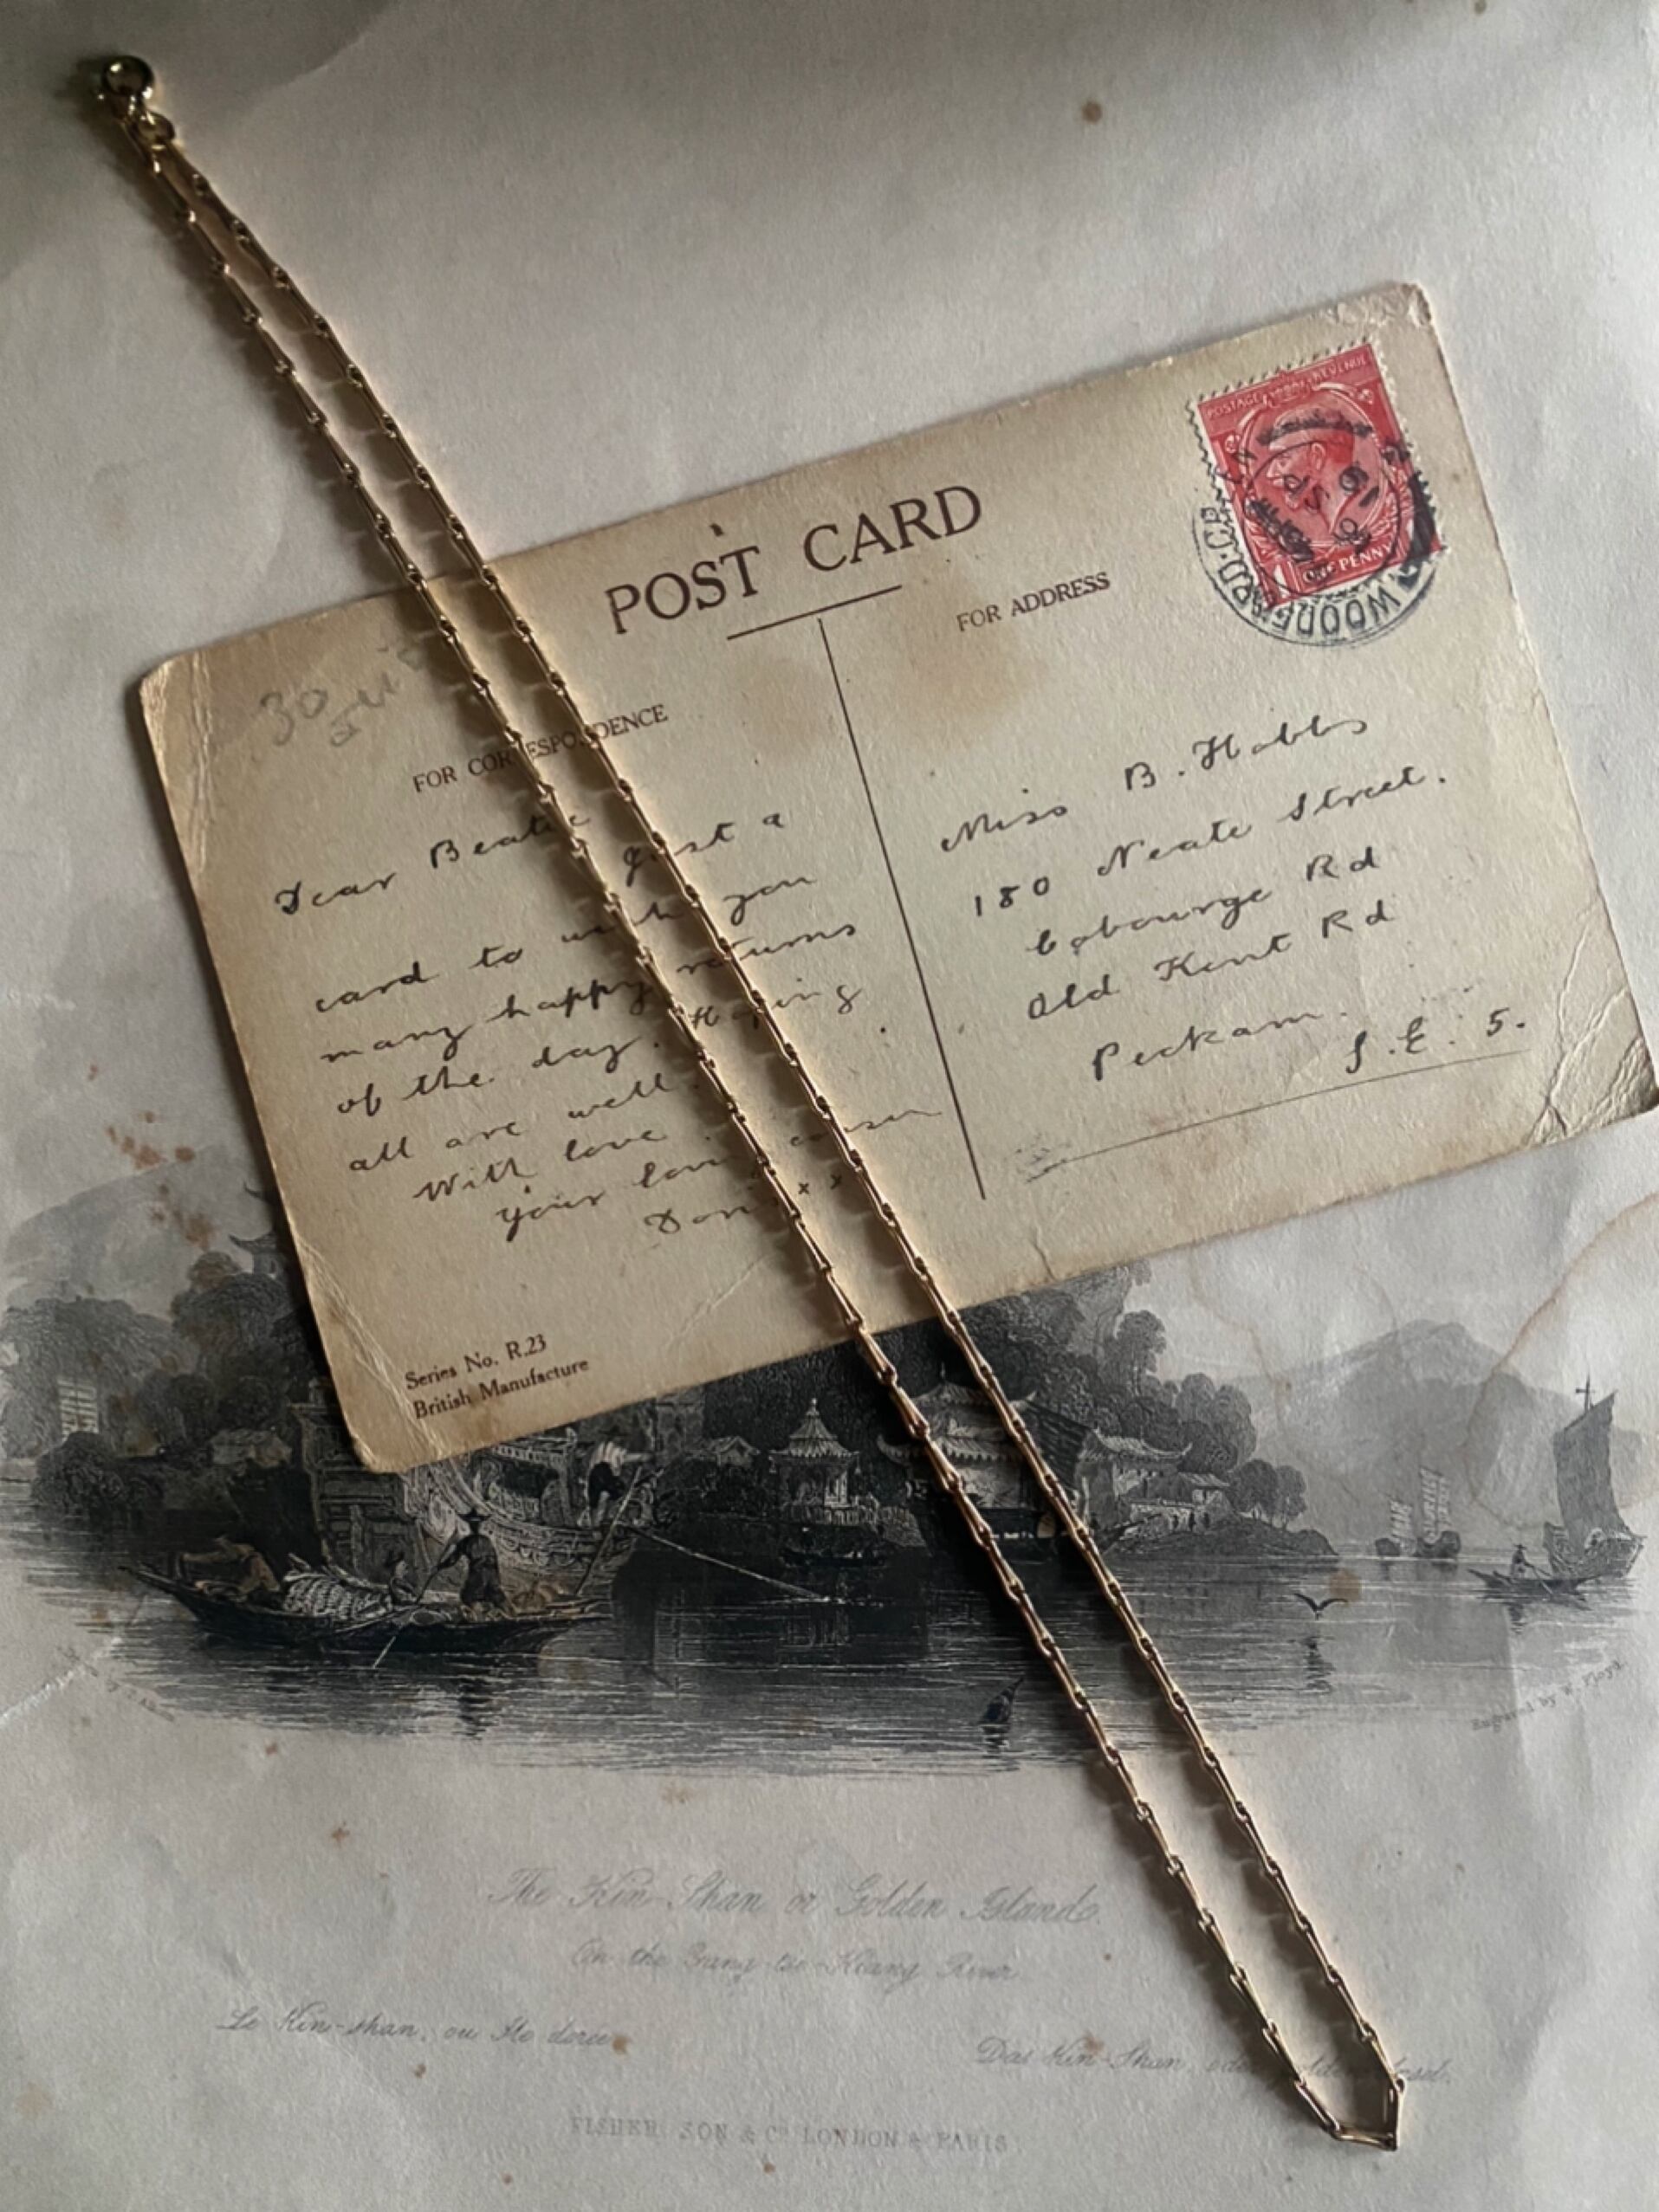 POST CARD
FOR ADDRESS
FOR CORRESPONDENCE
POSTAGE REVENUE
ONE PENNY
WOOD
30
Dear Beatie
Just a
card to wish you
many happy returns
of the day. Hoping
all are well.
With love.
your loving cousin
x x
Miss B. Hobbs
180 Neate Street.
Cobourge Rd
Old Kent Rd
Peckam.
S.E. 5.
Series No. R.23
British Manufacture
Engraved by W. Floyd.
The Kin-Shan or Golden Island.
On the Yang-tse-Kiang River
Le Kin-shan, ou Ile dorée
Das Kin-Shan,
FISHER, SON & Co. LONDON & PARIS